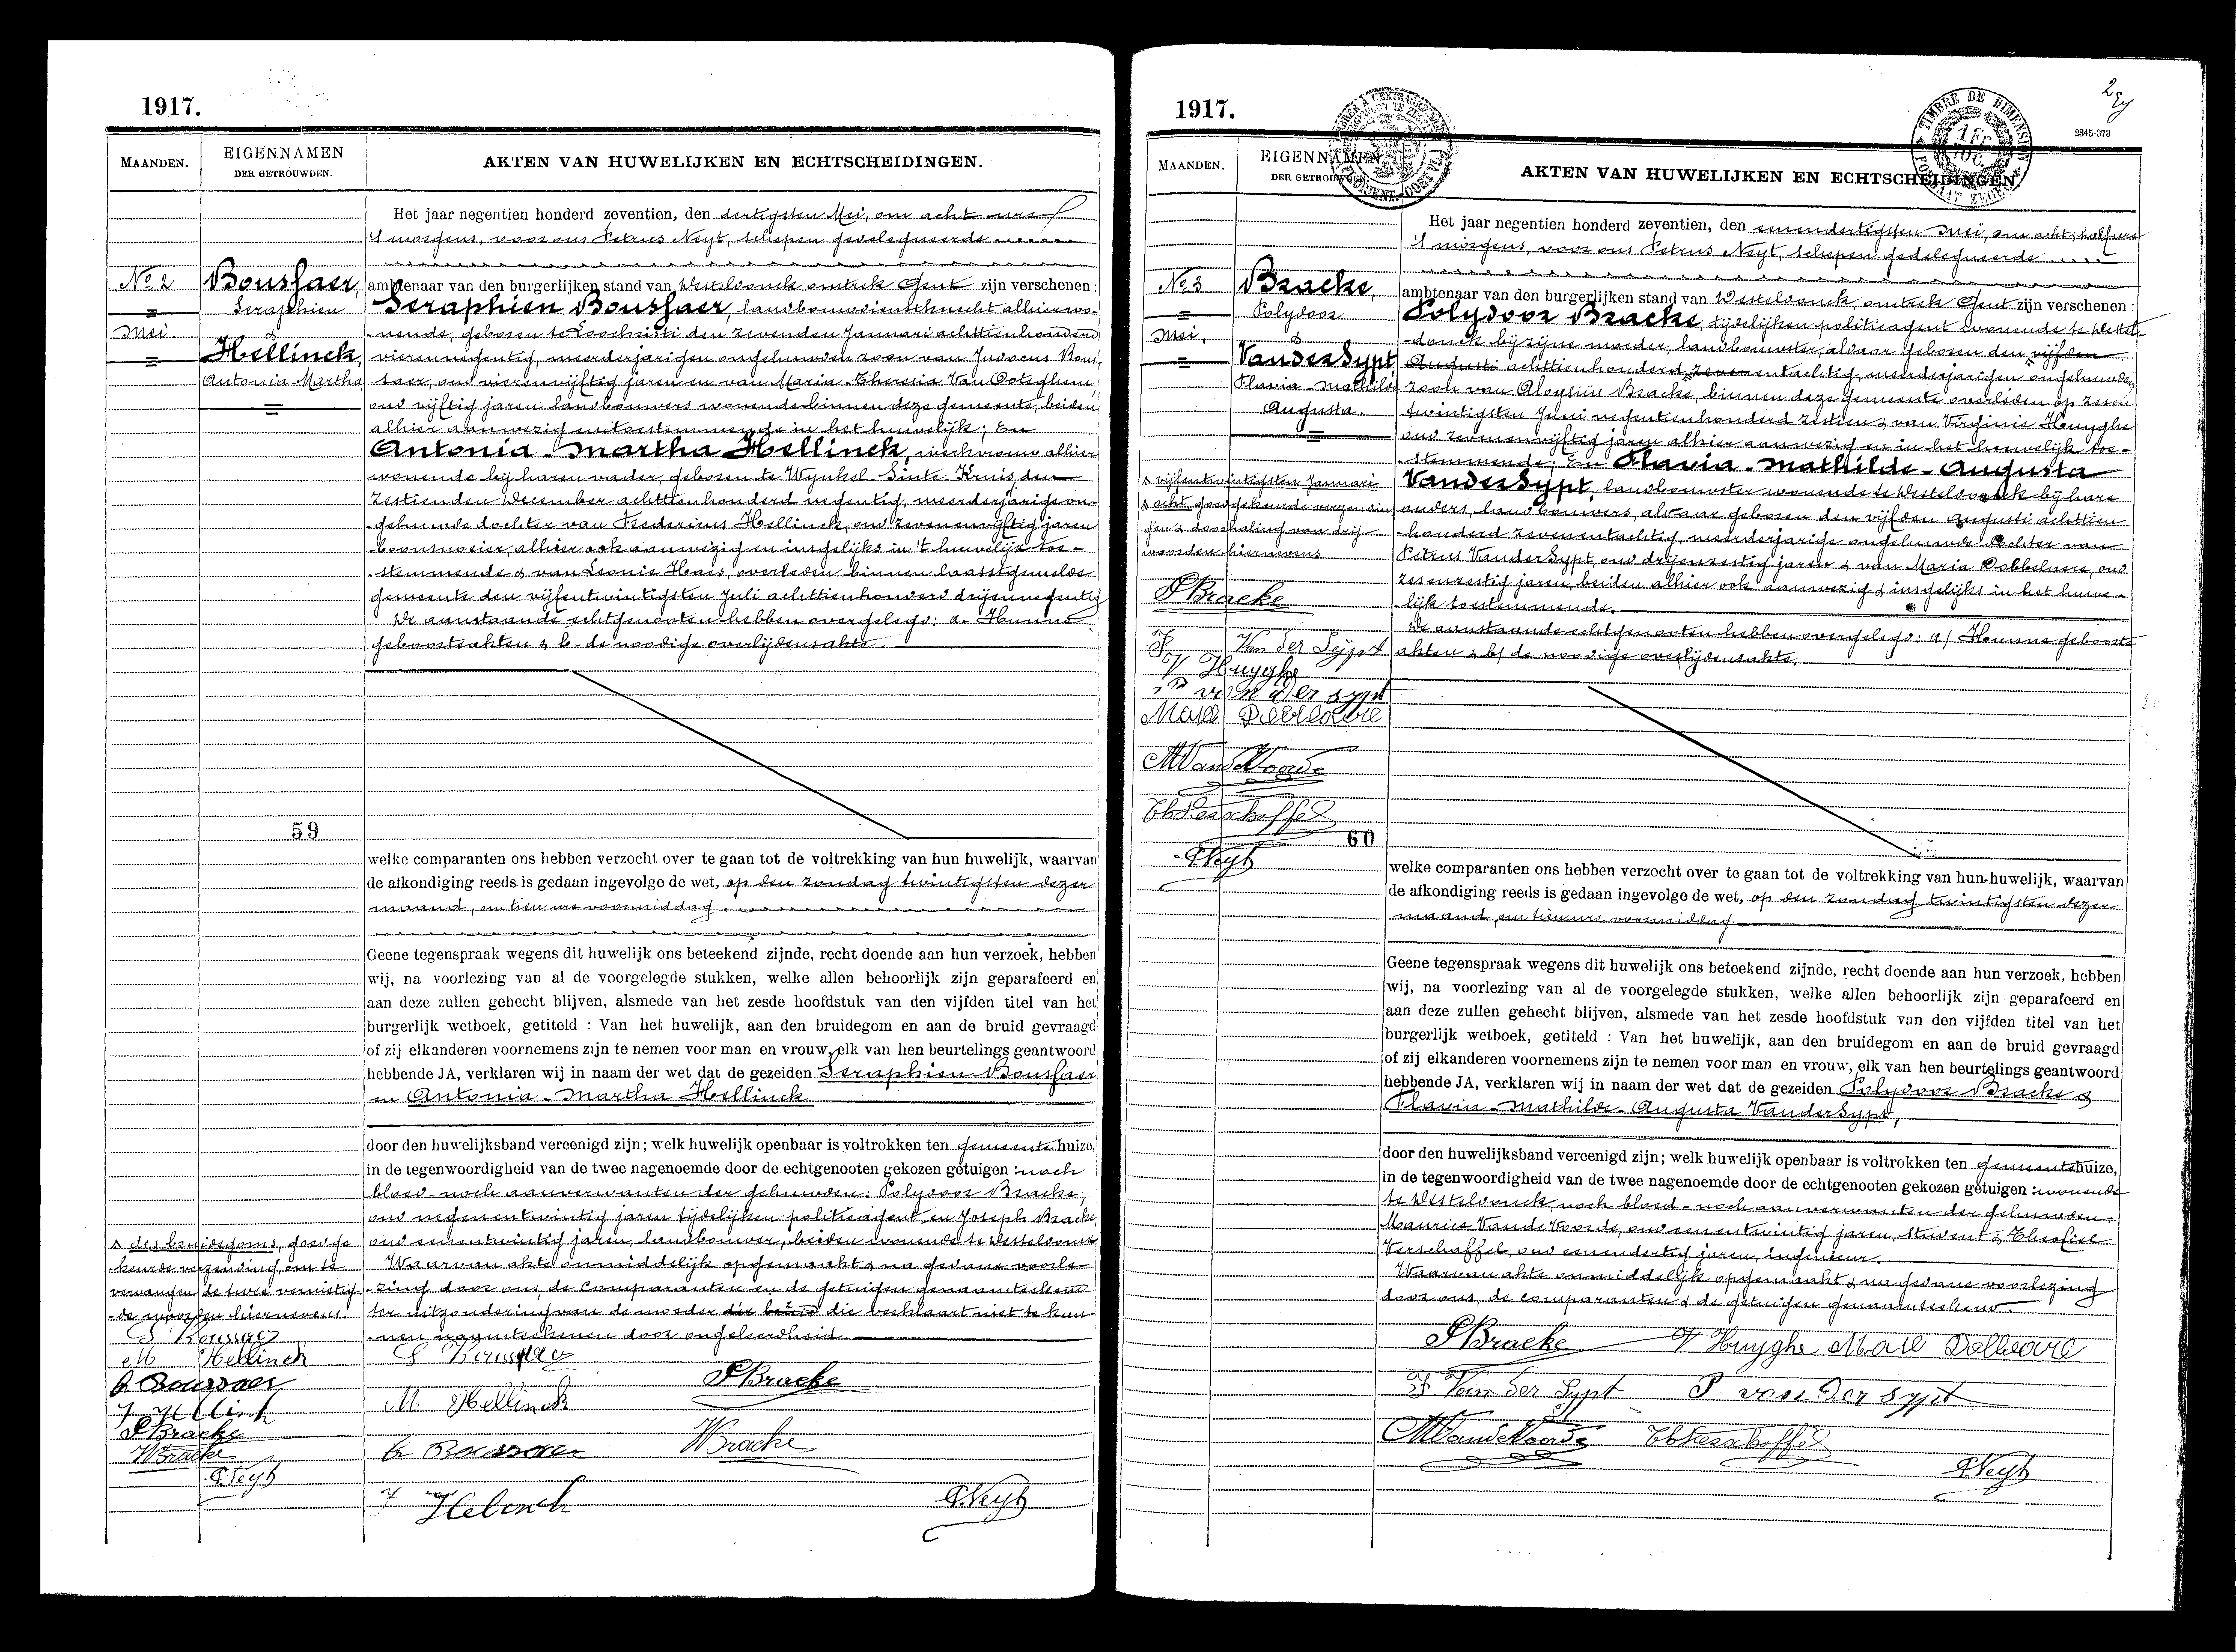 1917.
MAANDEN.
EIGENNAMEN
DER GETROUWDEN.
AKTEN VAN HUWELIJKEN EN ECHTSCHEIDINGEN.
Het jaar negentien honderd zeventien, den dertigsten Mei, om acht ure
'S morgens, voor ons Petrus Neyt, schepen gedelegueerde
No 2
Mei.
Boussaer,
Seraphien
&
Hellinck,
Antonia-Martha
ambtenaar van den burgerlijken stand van Westdonck omtrek Gent zijn verschenen :
Seraphien Boussaer, landbouwdienstknecht alhier wo-
nende, geboren te Loochristi den zevenden Januari achttienhonderd
vierennegentig, meerderjarigen ongehuwden zoon van Judocus Bous-
saer, oud vierenvijftig jaren en van Maria-Theresia Van Ooteghem,
oud vijftig jaren landbouwers wonende binnen deze gemeente, beiden
alhier aanwezig en toestemmende in het huwelijk; En
Antonia-Martha Hellinck, werkvrouw alhier
wonende bij haren vader, geboren te Wynkel-Sinte-Kruis den
zestienden December achttienhonderd negentig, meerderjarige on-
gehuwde dochter van Frederinus Hellinck, oud zevenenvijftig jaren
boomsnoeier, alhier ook aanwezig en insgelijks in 't huwelijk toe-
stemmende & van Leonie Haes, overleden binnen laatstgemelde
gemeente den vijfentwintigsten Juli achttienhonderd drijennegentig
De aanstaande echtgenooten hebben overgelegd: a- Hunne
geboorteakten & b- de noodige overlijdensakte.
59
welke comparanten ons hebben verzocht over te gaan tot de voltrekking van hun huwelijk, waarvan
de afkondiging reeds is gedaan ingevolge de wet, op den zondag twintigsten dezer
maand, om tien ure voormiddag.
Geene tegenspraak wegens dit huwelijk ons beteekend zijnde, recht doende aan hun verzoek, hebben
wij, na voorlezing van al de voorgelegde stukken, welke allen behoorlijk zijn geparafeerd en
aan deze zullen gehecht blijven, alsmede van het zesde hoofdstuk van den vijfden titel van het
burgerlijk wetboek, getiteld : Van het huwelijk, aan den bruidegom en aan de bruid gevraagd
of zij elkanderen voornemens zijn te nemen voor man en vrouw, elk van hen beurtelings geantwoord
hebbende JA, verklaren wij in naam der wet dat de gezeiden Seraphien Boussaer
en Antonia-Martha Hellinck
door den huwelijksband vereenigd zijn; welk huwelijk openbaar is voltrokken ten gemeente huize,
in de tegenwoordigheid van de twee nagenoemde door de echtgenooten gekozen getuigen : noch
bloed- noch aanverwanten der gehuwden: Polydoor Bracke,
oud negenentwintig jaren tijdelijken politieagent en Joseph Bracke
oud eenentwintig jaren, landbouwer, beiden wonende te Westdonck
Waarvan akte onmiddelijk opgemaakt & na gedane voorle-
zing door ons, de comparanten en de getuigen genaamteekend
ter uitzondering van de moeder die verklaart niet te kun-
nen naamteekenen door ongeleerdheid.
des bruidegoms, goedge-
keurde verzending, om te
vervangen de twee vernietig-
de woorden hiernevens
S Boussaer
M Hellinck
Boussaer
PBracke
WBracke
P.Neyt
S Boussaer
M Hellinck
PBracke
Boussaer
WBracke
P.Neyt
1917.
2345-373
TIMBRE DE DIMENSION
MAANDEN.
EIGENNAMEN
DER GETROUWDEN.
AKTEN VAN HUWELIJKEN EN ECHTSCHEIDINGEN
Het jaar negentien honderd zeventien, den eenendertigsten Mei, om acht & half ure
'S morgens, voor ons Petrus Neyt, schepen gedelegueerde
No 3
Mei.
Bracke,
Polydoor
&
VanderSypt
Flavia-Mathilde
Augusta.
ambtenaar van den burgerlijken stand van Westdonck, omtrek Gent zijn verschenen :
Polydoor Bracke, tijdelijken politieagent wonende te Westd-
donck bij zijne moeder, landbouwster, aldaar geboren den vijfden
Augusti achttienhonderd zevenentachtig, meerderjarigen ongehuwden
zoon van Aloysius Bracke, binnen deze gemeente overleden op zesen
twintigsten Juni negentienhonderd zestien & van Virginie Huyghe
oud zevenenvijftig jaren alhier aanwezig en in het huwelijk toe-
stemmende; En Flavia-Mathilde-Augusta
VanderSypt, landbouwster wonende te Westdonck bij hare
ouders, landbouwers, aldaar geboren den vijfden Augusti achttien
honderd zevenentachtig, meerderjarige ongehuwde dochter van
Petrus VanderSypt, oud drijenzestig jaren & van Maria Dobbelaere, oud
zesenzestig jaren, beiden alhier ook aanwezig & insgelijks in het huwe-
lijk toestemmende.
De aanstaande echtgenooten hebben overgelegd: a/ Hunne geboorte
akten & b/ de noodige overlijdensakte.
vijfentwintigsten Januari
acht goedgekeurde verzendin
gen & doorhaling van drij
woorden hiernevens
PBracke
F Van der Sypt
V Huyghe
P van der sypt
MVandeVoorde
ThVerschaffel
P.Neyt
60
welke comparanten ons hebben verzocht over te gaan tot de voltrekking van hun huwelijk, waarvan
de afkondiging reeds is gedaan ingevolge de wet, op den zondag twintigsten dezer
maand, om tien ure voormiddag
Geene tegenspraak wegens dit huwelijk ons beteekend zijnde, recht doende aan hun verzoek, hebben
wij, na voorlezing van al de voorgelegde stukken, welke allen behoorlijk zijn geparafeerd en
aan deze zullen gehecht blijven, alsmede van het zesde hoofdstuk van den vijfden titel van het
burgerlijk wetboek, getiteld : Van het huwelijk, aan den bruidegom en aan de bruid gevraagd
of zij elkanderen voornemens zijn te nemen voor man en vrouw, elk van hen beurtelings geantwoord
hebbende JA, verklaren wij in naam der wet dat de gezeiden Polydoor Bracke &
Flavia-Mathilde-Augusta VanderSypt,
door den huwelijksband vereenigd zijn; welk huwelijk openbaar is voltrokken ten gemeentehuize,
in de tegenwoordigheid van de twee nagenoemde door de echtgenooten gekozen getuigen : wonende
te Westdonck, noch bloed- noch aanverwanten der gehuwden:
Maurice VandeVoorde, oud eenentwintig jaren, student & Theofiel
Verschaffel, oud eenendertig jaren, ingenieur.
Waarvan akte onmiddelijk opgemaakt & na gedane voorlezing
door ons, de comparanten & de getuigen genaamteekend
PBracke V Huyghe
F Van der Sypt P van der sypt
MVandeVoorde ThVerschaffel
P.Neyt